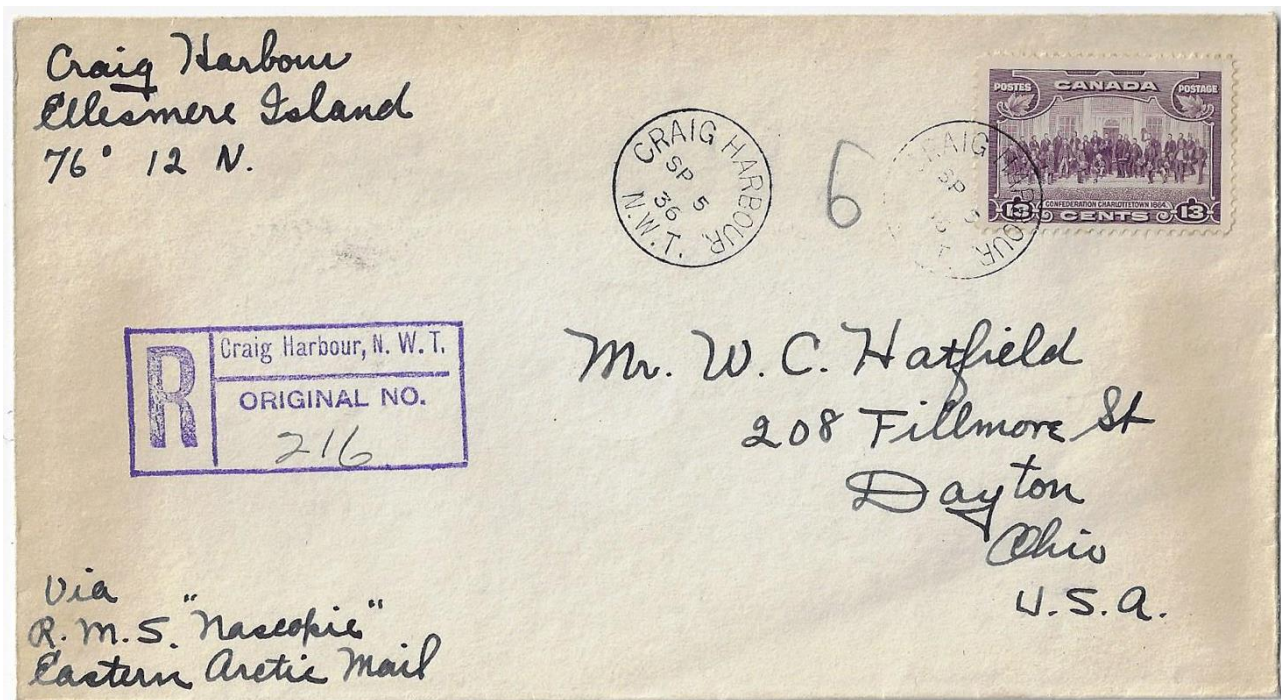 Craig Harbour
Ellesmere Island
76° 12 N.
CRAIG HARBOUR
SP 5
36
N.W.T.
6
CRAIG HARBOUR
SP 5
POSTES CANADA POSTAGE
CONFEDERATION CHARLOTTETOWN 1864
13 CENTS 13
R
Craig Harbour, N. W. T.
ORIGINAL NO.
216
Mr. W. C. Hatfield
208 Fillmore St
Dayton
Ohio
U.S.A.
Via
R.M.S. "Nascopie"
Eastern Arctic Mail